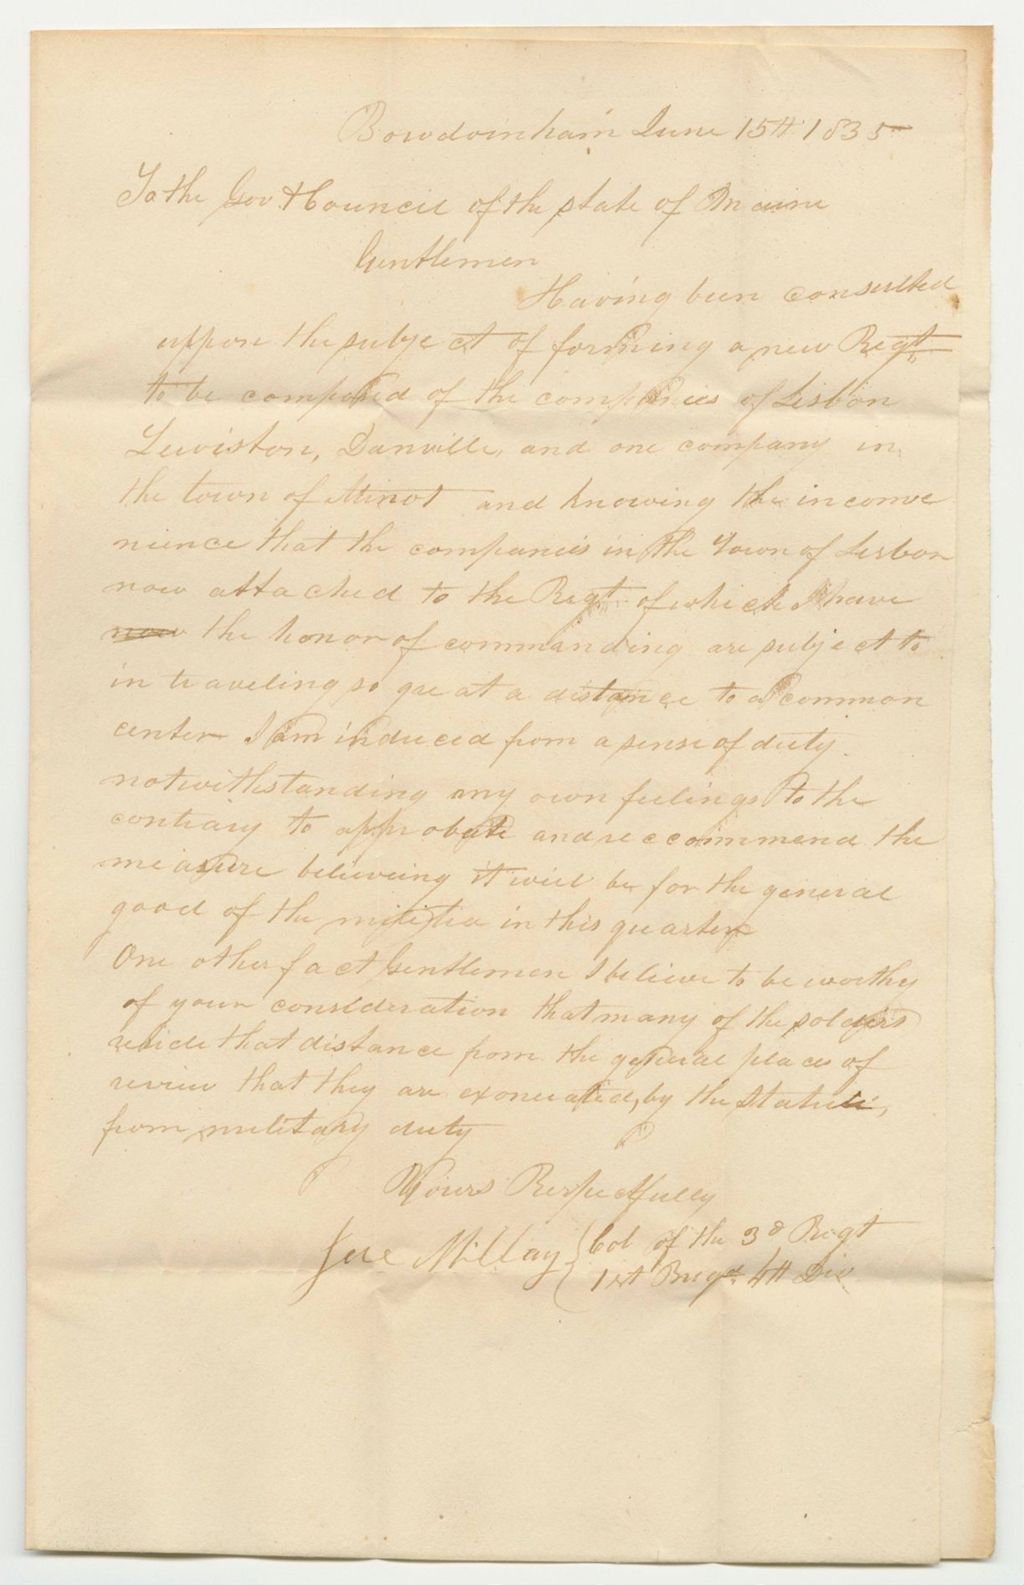 Bowdoinham June 15th 1835
To the Gov & Council of the state of Maine
Gentlemen
Having been consulted
uppon the subject of forming a new Regt
to be composed of the companies of Lisbon
Lewiston, Danville, and one company in
the town of Minot and knowing the inconve
nience that the companies in the Town of Lisbon
now attached to the Regt of which I have
now the honor of commanding are subject to
in traveling so great a distance to a common
center I am induced from a sense of duty
notwithstanding my own feelings to the
contrary to approbate and reccommend the
measure believeing it will be for the general
good of the militia in this quarter
One other fact Gentlemen I believe to be worthy
of your consideration that many of the soldiers
reside that distance from the general place of
review that they are exonerated, by the Statute,
from military duty
Yours Respectfully
Millay Col of the 3d Regt
1st Brigd 4th Div